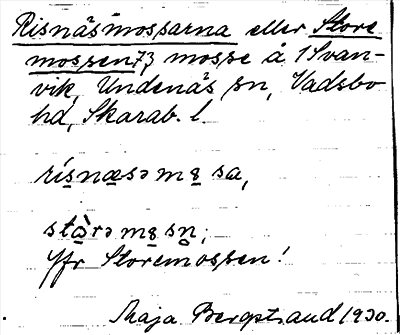 Risnäsmossarna eller Store
mossen 73 mosse å 1 Svan-
vik, Undenäs sn, Vadsbo
hd, Skarab. l.
rísnæsə mɷsa,
stɷ̀rə mɷsn̥;
Jfr Storemossen!
Maja Bergstrand 1930.